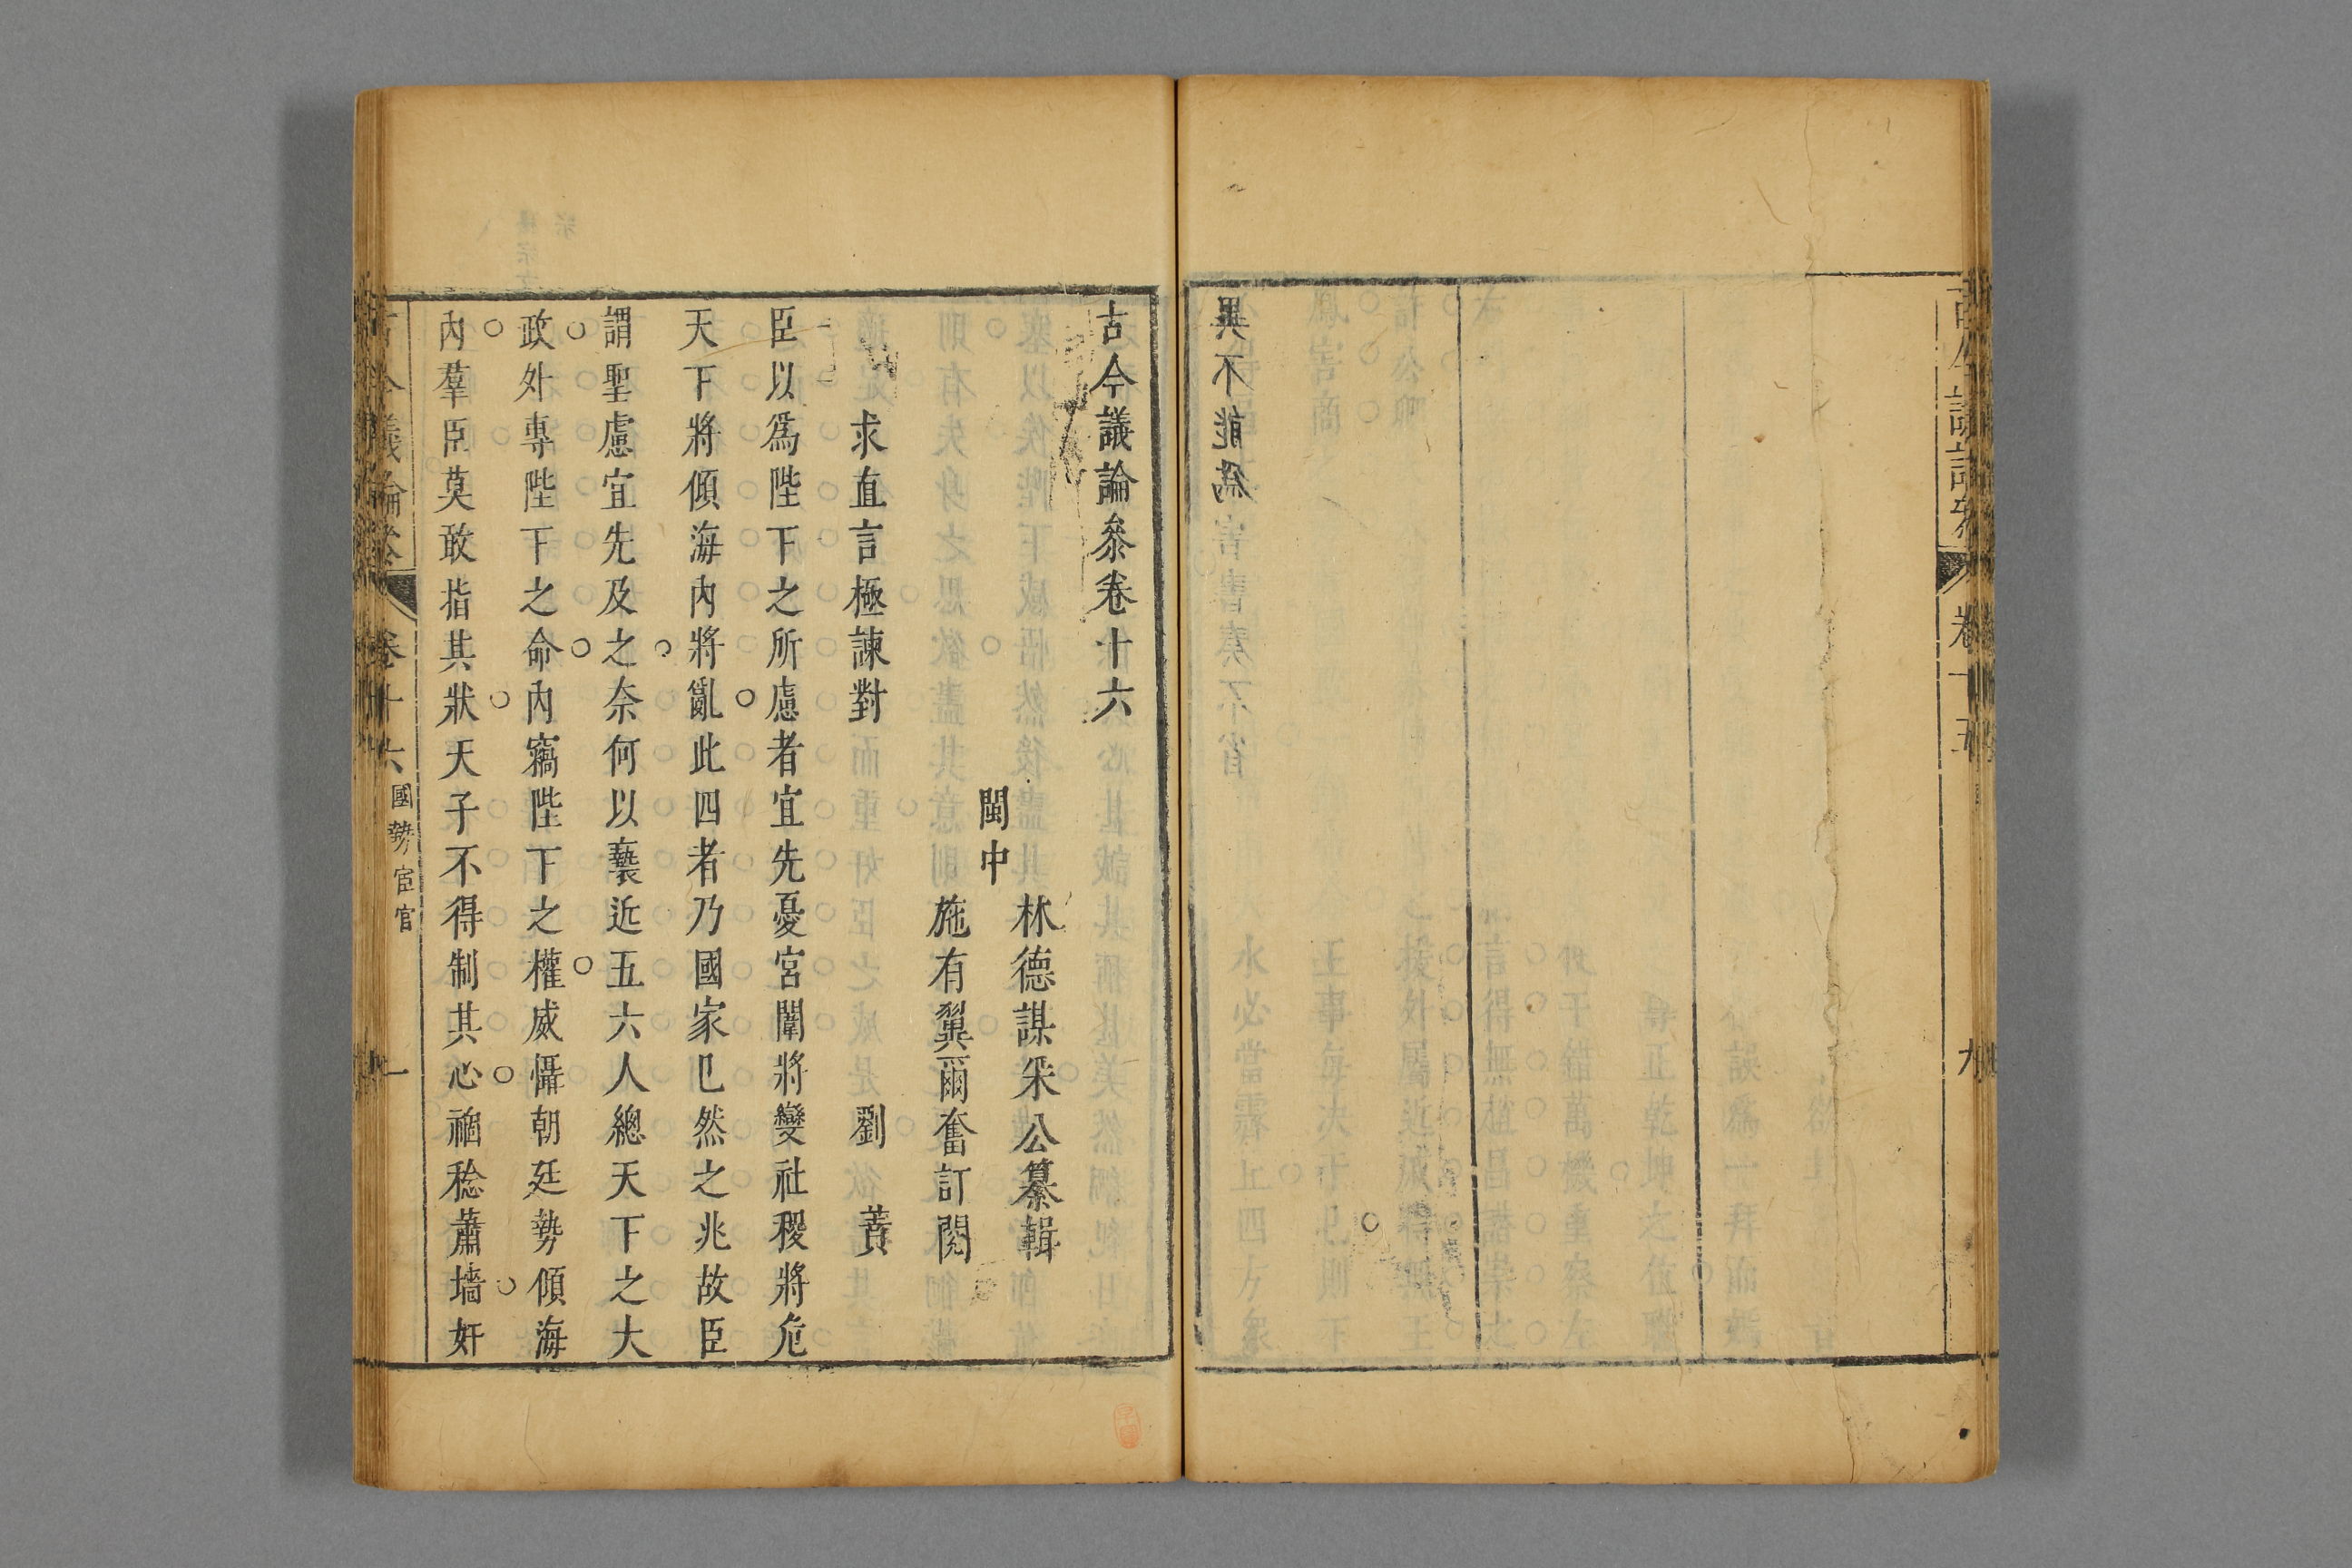 異不能爲
古今議論參
卷十五
九
古今議論參卷十六
閩中
林德謀采公纂輯
施有翼爾奮訂閱
求直言極諫對
劉蕡
臣以爲陛下之所慮者宜先憂宮闈將變社稷將危
天下將傾海內將亂此四者乃國家已然之兆故臣
謂聖慮宜先及之奈何以褻近五六人總天下之大
政外專陛下之命內竊陛下之權威懾朝廷勢傾海
內羣臣莫敢指其狀天子不得制其心禍稔蕭墻奸
古今議論參
卷十六
國勢宦官
一